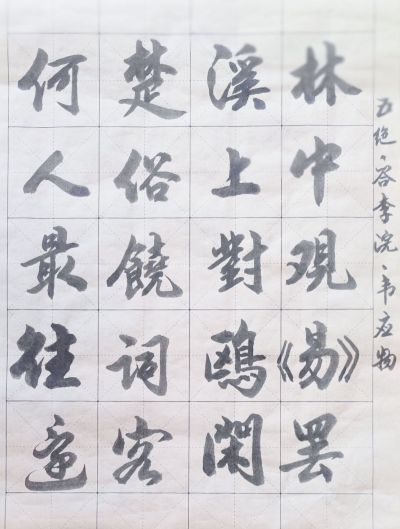 五绝·答李浣·韦应物
林中观《易》罢
溪上對鷗閑
楚俗饒词客
何人最往还